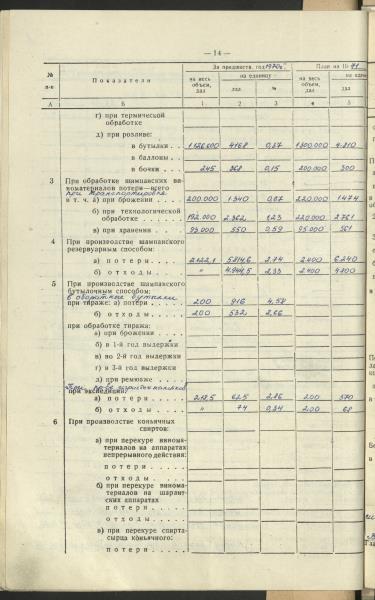 — 14 —
№ п-п
Показатели
За предшеств. год 1970г.
План на 1971
на весь объем, дал
на единицу
на весь объем, дал
на един
дал
%
дал
А Б 1 2 3 4 5
г) при термической
обработке
д) при розливе:
в бутылки . . 1126600 4168 0,37 1300000 4810
в баллоны . .
в бочки . . . 245 368 0,15 200000 300
3 При обработке шампанских ви-
номатериалов потери—всего
при транспортировке
в т. ч. а) при брожении . . 200.000 1340 0,67 220.000 1474
б) при технологической
обработке . . . 192.000 2362 1,23 220.000 2761
в) при хранении . . 93.000 550 0,59 95000 561
4 При производстве шампанского
резервуарным способом:
а) потери . . . . 2122,1 5814,6 2,74 2400 6240
б) отходы . . . . " 4944,5 2,33 2400 4800
5 При производстве шампанского
бутылочным способом:
в оборотные бутылки
при тираже: а) потери . . 200 916 4,58
б) отходы . . 200 532 2,66
при обработке тиража:
а) при брожении . . . .
б) в 1-й год выдержки
в) во 2-й год выдержки
г) в 3-й год выдержки
д) при ремюаже . . . .
при экспедиции:
а) потери . . . . 218,5 62,5 2,86 200 570
б) отходы . . . . " 74 0,34 200 68
6 При производстве коньячных
спиртов:
а) при перекуре винома-
териалов на аппаратах
непрерывного действия:
потери . . . . .
отходы . . . . .
б) при перекуре винома-
териалов на шарант-
ских аппаратах
потери . . . . .
отходы . . . . .
в) при перекуре спирта-
сырца коньячного:
потери . . . . .